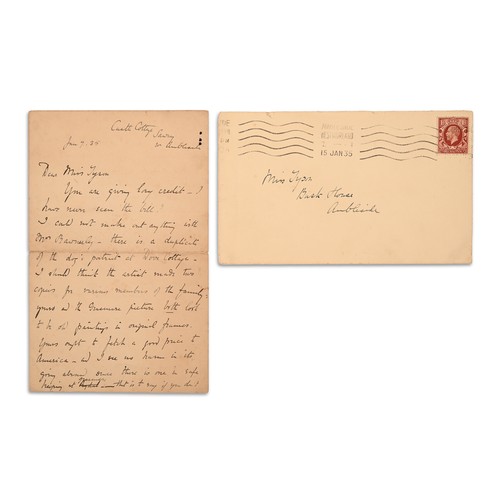 Castle Cottage
Sawrey
nr Ambleside
Jan 7. 34
Dear Miss Tyson
You are giving long credit – I
have never seen the bill!
I could not make out anything with
Mrs Rawnsley – there is a duplicate
of the dog's portrait at Dove Cottage –
I should think the artist made two
copies for various members of the family,
yours and the Grasmere picture both look
to be old paintings in original frames.
Yours ought to fetch a good price to
America – and I see no harm in its
going abroad, since there is one in safe
keeping at – that is to say if you don't
15 JAN 35
Miss Tyson
Bank House
Ambleside